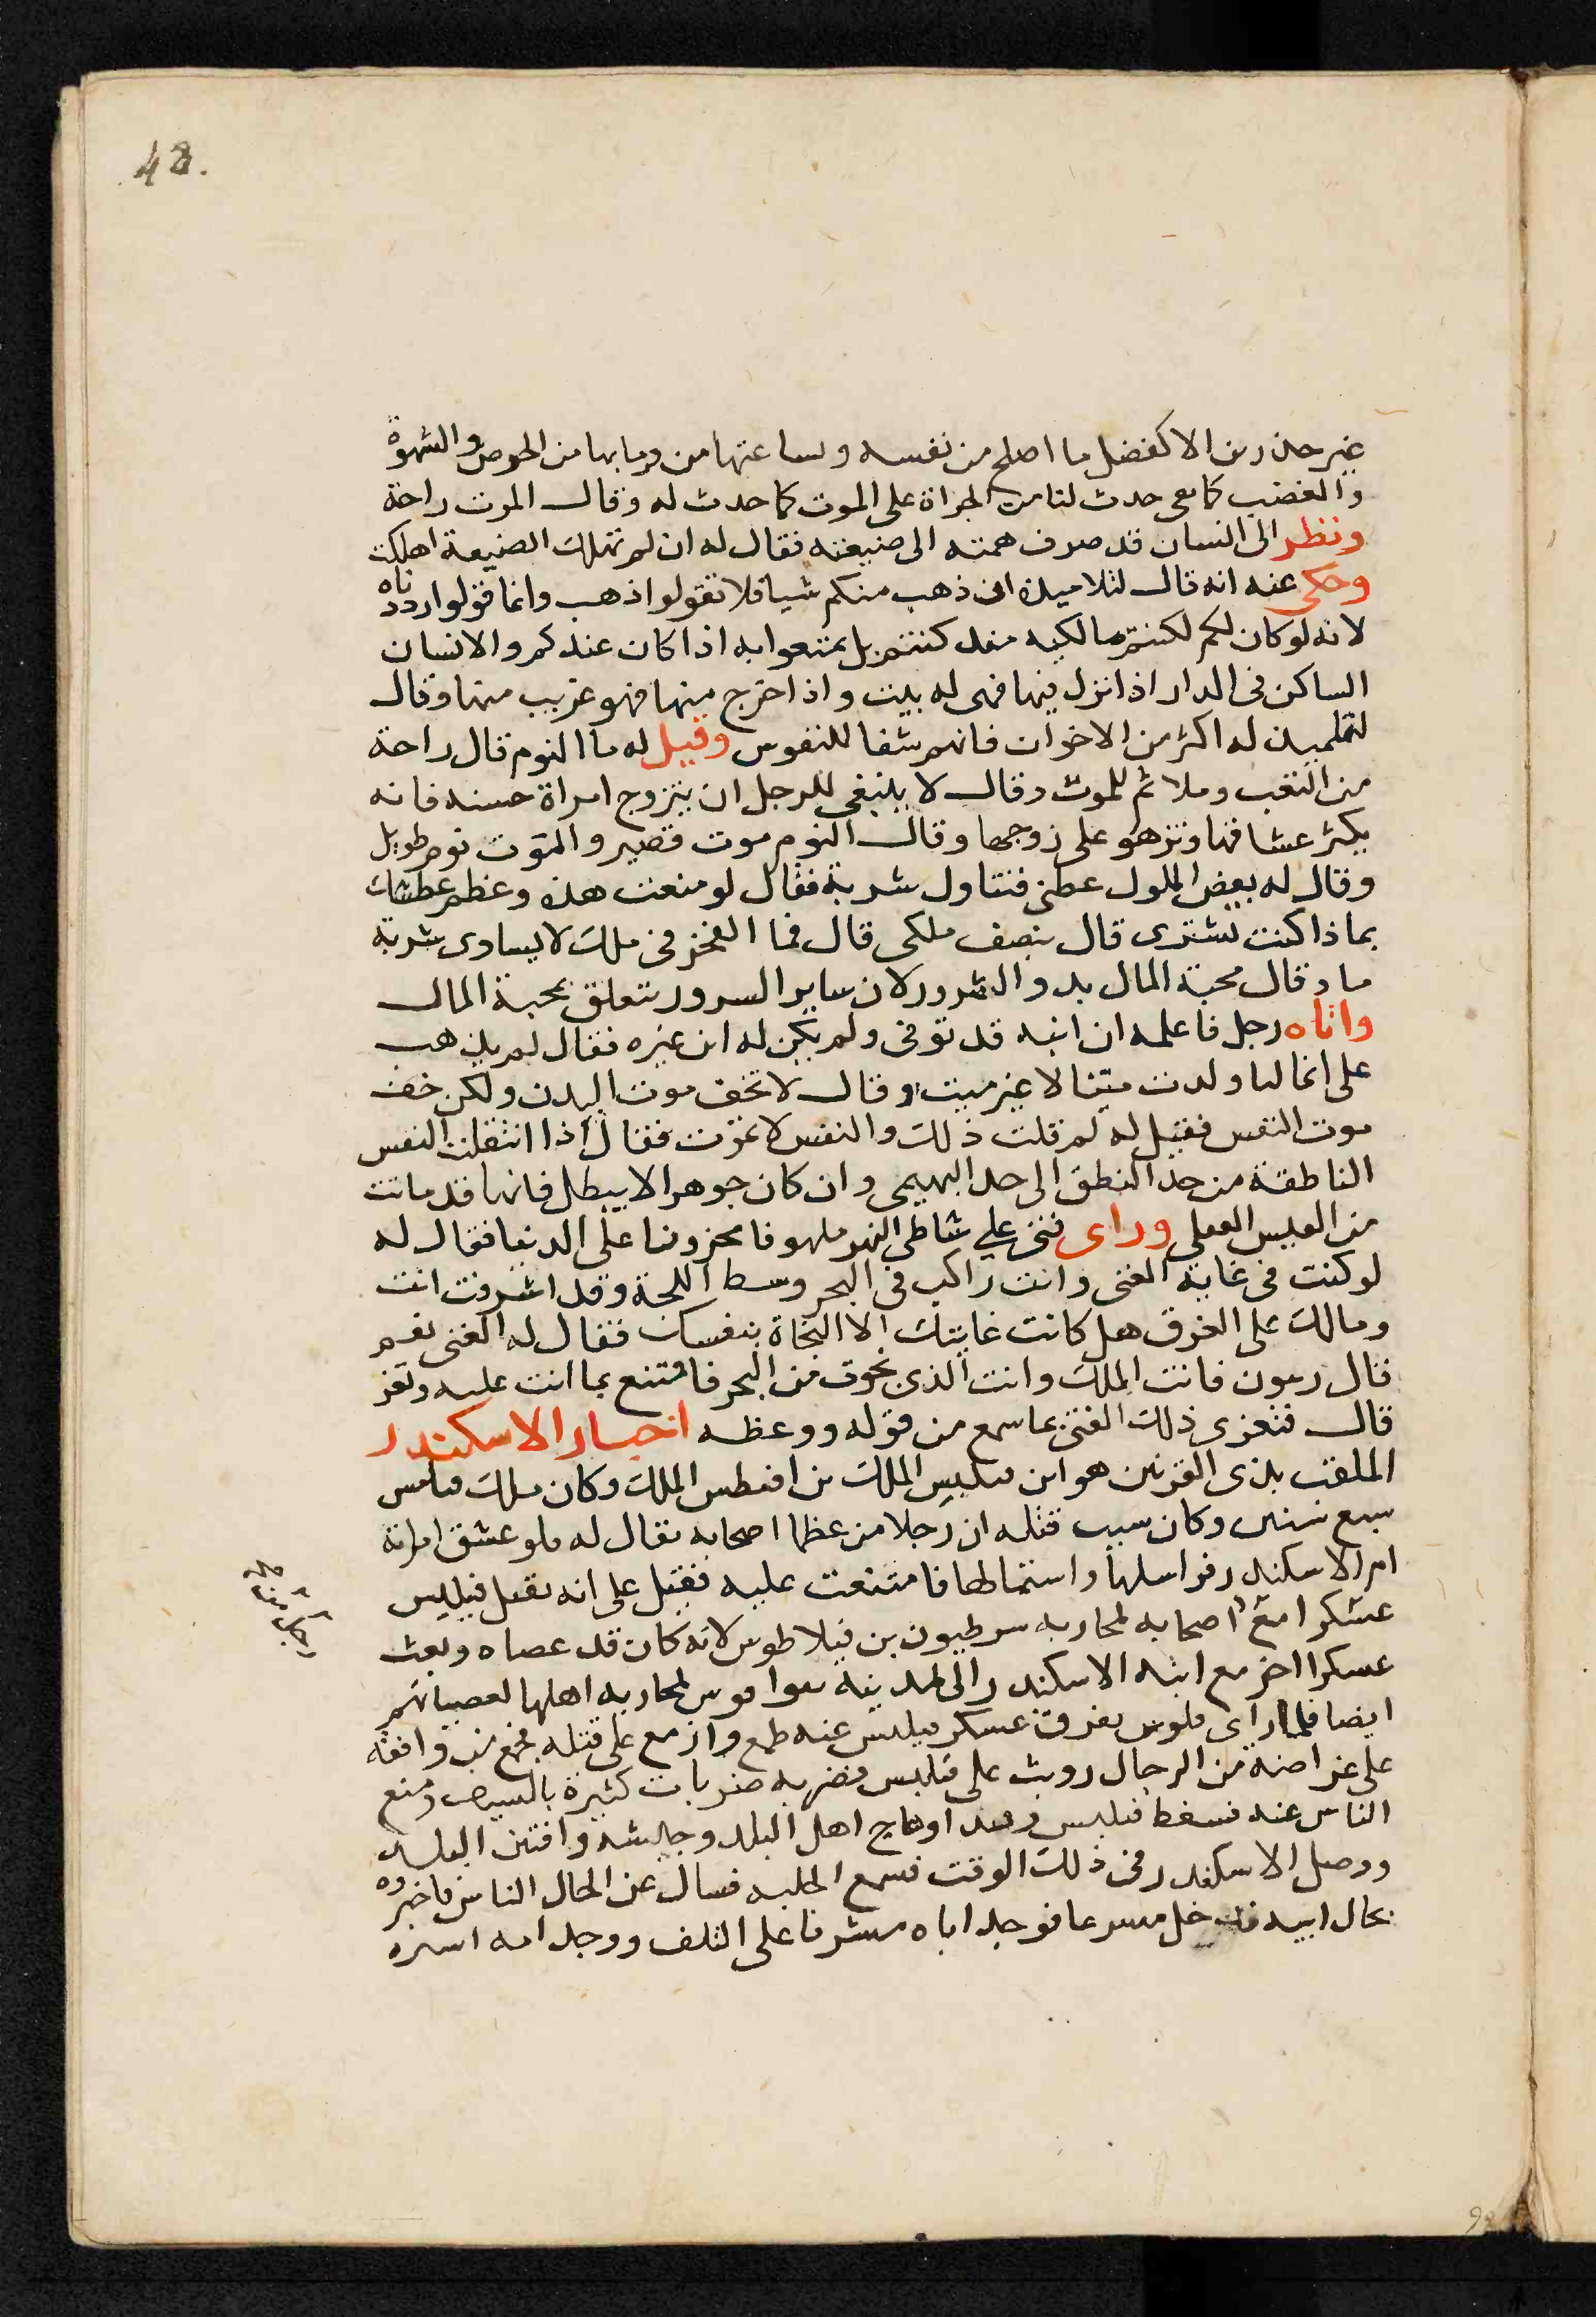 48.
غير حذر من الا كفضل ما اصلح من نفسه و من الحرص والشهوة
والغضب كا حدث لنا من الجراة على الموت كما حدث له وقال الموت راحة
ونظر الى انسان قد صرف همته الى ضيعته فقال له ان لم تهلك الضيعة اهلكت
وحكى عنه انه قال لتلاميذه ان ذهب منكم شيا فلا تقولوا ذهب وانما قولوا رددناه
لانه لو كان لكم لكنتم مالكيه منذ كنتم بل تمتعوا به اذا كان عندكم والانسان
الساكن فى الدار اذا نزل فيها فهى له بيت واذا خرج منها فهو غريب منها وقال
لتلميذ له اكثر من الاخوان فانهم شفا للنفوس وقيل له ما النوم قال راحة
من التعب وملائم للموت وقال لا ينبغى للرجل ان يتزوج امراة حسنه فانه
يكثر عشاقها وتزهو على زوجها وقال النوم موت قصير والموت نوم طويل
وقال له بعض الملوك عظنى فتناول شربة فقال لو منعت هذه وعظم عطشك
بماذا كنت تشترى قال بنصف ملكى قال فما الفخر فى ملك لا يساوى شربة
ما وقال محبة المال بدو الشرور لان ساير السرور تتعلق بمحبة المال
واتاه رجل فاعلمه ان ابنه قد توفى ولم يكن له ابن غيره فقال لم يذهب
على انما ولدت ميتا لا غير ميت وقال لا تخف موت البدن ولكن خف
موت النفس فقيل له لم قلت ذلك والنفس لا تموت فقال اذا انتقلت النفس
الناطقة من حد النطق الى حد البهيمى وان كان جوهرا لا يبطل فانها قد ماتت
من العيش العقلى وراى فتى على شاطى النهر ملهوفا محزونا على الدنيا فقال له
لو كنت فى غاية الغنى وانت راكب فى البحر وسط اللجة وقد اشرفت انت
ومالك على الغرق هل كانت غايتك الا النجاة بنفسك فقال له الفتى نعم
قال زينون فانت الملك وانت الذى نجوت من البحر فاقتنع بما انت عليه وتعز
قال فتعزى ذلك الفتى بما سمع من قوله ووعظه اخبار الاسكندر
الملقب بذى القرنين هو ابن فيلبس الملك بن امنطس الملك وكان ملك فيلبس
سبع سنين وكان سبب قتله ان رجلا من عظما اصحابه يقال له فلو عشق امراته
ام الاسكندر فراسلها واستمالها فامتنعت عليه فقبل على انه يقتل فيلبس
عسكرا مع اصحابه لمحاربه بن فيلاطوس لانه كان قد عصاه وبعث
عسكرا اخر مع ابنه الاسكندر الى لمدينه لمحاربه اهلها لعصيانهم
ايضا فلما راى فلوس تفرق عسكر فيلبس عنه طمع وازمع على قتله فجمع من وافقه
على غراضه من الرجال ووثب على فيلبس فضربه ضربات كثيرة بالسيف ومنع
الناس عنه فسقط فيلبس وهاج اهل البلد وجيشه وافتتن البلد
ووصل الاسكندر فى ذلك الوقت فسمع الجلبه فسال عن الحال الناس فاخبروه
بحال ابيه فدخل مسرعا فوجد اباه مشرفا على التلف ووجد امه اسيره